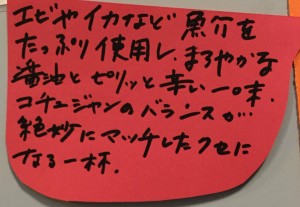 エビやイカなど魚介を
たっぷり使用し、まろやかな
醤油とピリッと辛い一味。
コチュジャンのバランスが
絶妙にマッチしたクセに
なる一杯。